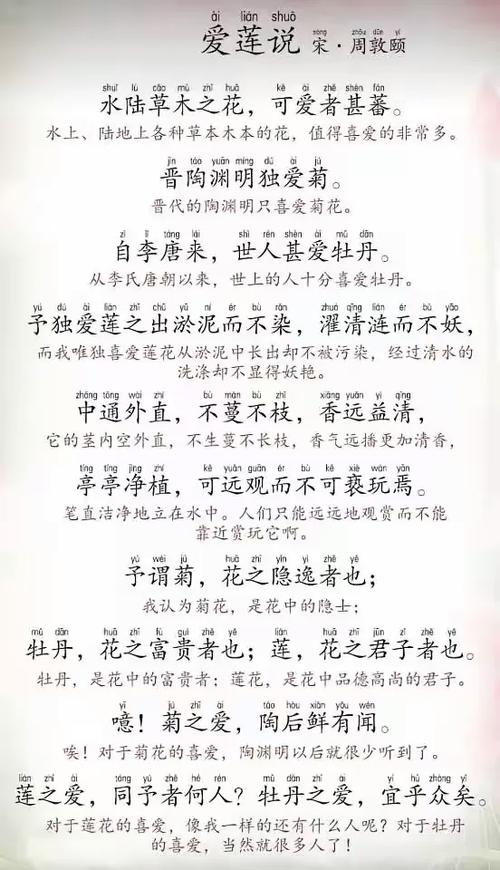 ài lián shuō
爱莲说 宋·周敦颐
shuǐ lù cǎo mù zhī huā kě ài zhě shèn fán
水陆草木之花，可爱者甚蕃。
水上、陆地上各种草本木本的花，值得喜爱的非常多。
jìn táo yuān míng dú ài jú
晋陶渊明独爱菊。
晋代的陶渊明只喜爱菊花。
zì lǐ táng lái shì rén shèn ài mǔ dān
自李唐来，世人甚爱牡丹。
从李氏唐朝以来，世上的人十分喜爱牡丹。
yú dú ài lián zhī chū yū ní ér bù rǎn zhuó qīng lián ér bù yāo
予独爱莲之出淤泥而不染，濯清涟而不妖，
而我唯独喜爱莲花从淤泥中长出却不被污染，经过清水的
洗涤却不显得妖艳。
zhōng tōng wài zhí bù màn bù zhī xiāng yuǎn yì qīng
中通外直，不蔓不枝，香远益清，
它的茎内空外直，不生蔓不长枝，香气远播更加清香，
tíng tíng jìng zhí kě yuǎn guān ér bù kě xiè wán yān
亭亭净植，可远观而不可亵玩焉。
笔直洁净地立在水中。人们只能远远地观赏而不能
靠近赏玩它啊。
yú wèi jú huā zhī yǐn yì zhě yě
予谓菊，花之隐逸者也；
我认为菊花，是花中的隐士；
mǔ dān huā zhī fù guì zhě yě lián huā zhī jūn zǐ zhě yě
牡丹，花之富贵者也；莲，花之君子者也。
牡丹，是花中的富贵者；莲花，是花中品德高尚的君子。
yī jú zhī ài táo hòu xiǎn yǒu wén
噫！菊之爱，陶后鲜有闻。
唉！对于菊花的喜爱，陶渊明以后就很少听到了。
lián zhī ài tóng yú zhě hé rén mǔ dān zhī ài yí hū zhòng yǐ
莲之爱，同予者何人？牡丹之爱，宜乎众矣。
对于莲花的喜爱，像我一样的还有什么人呢？对于牡丹
的喜爱，当然就很多人了！